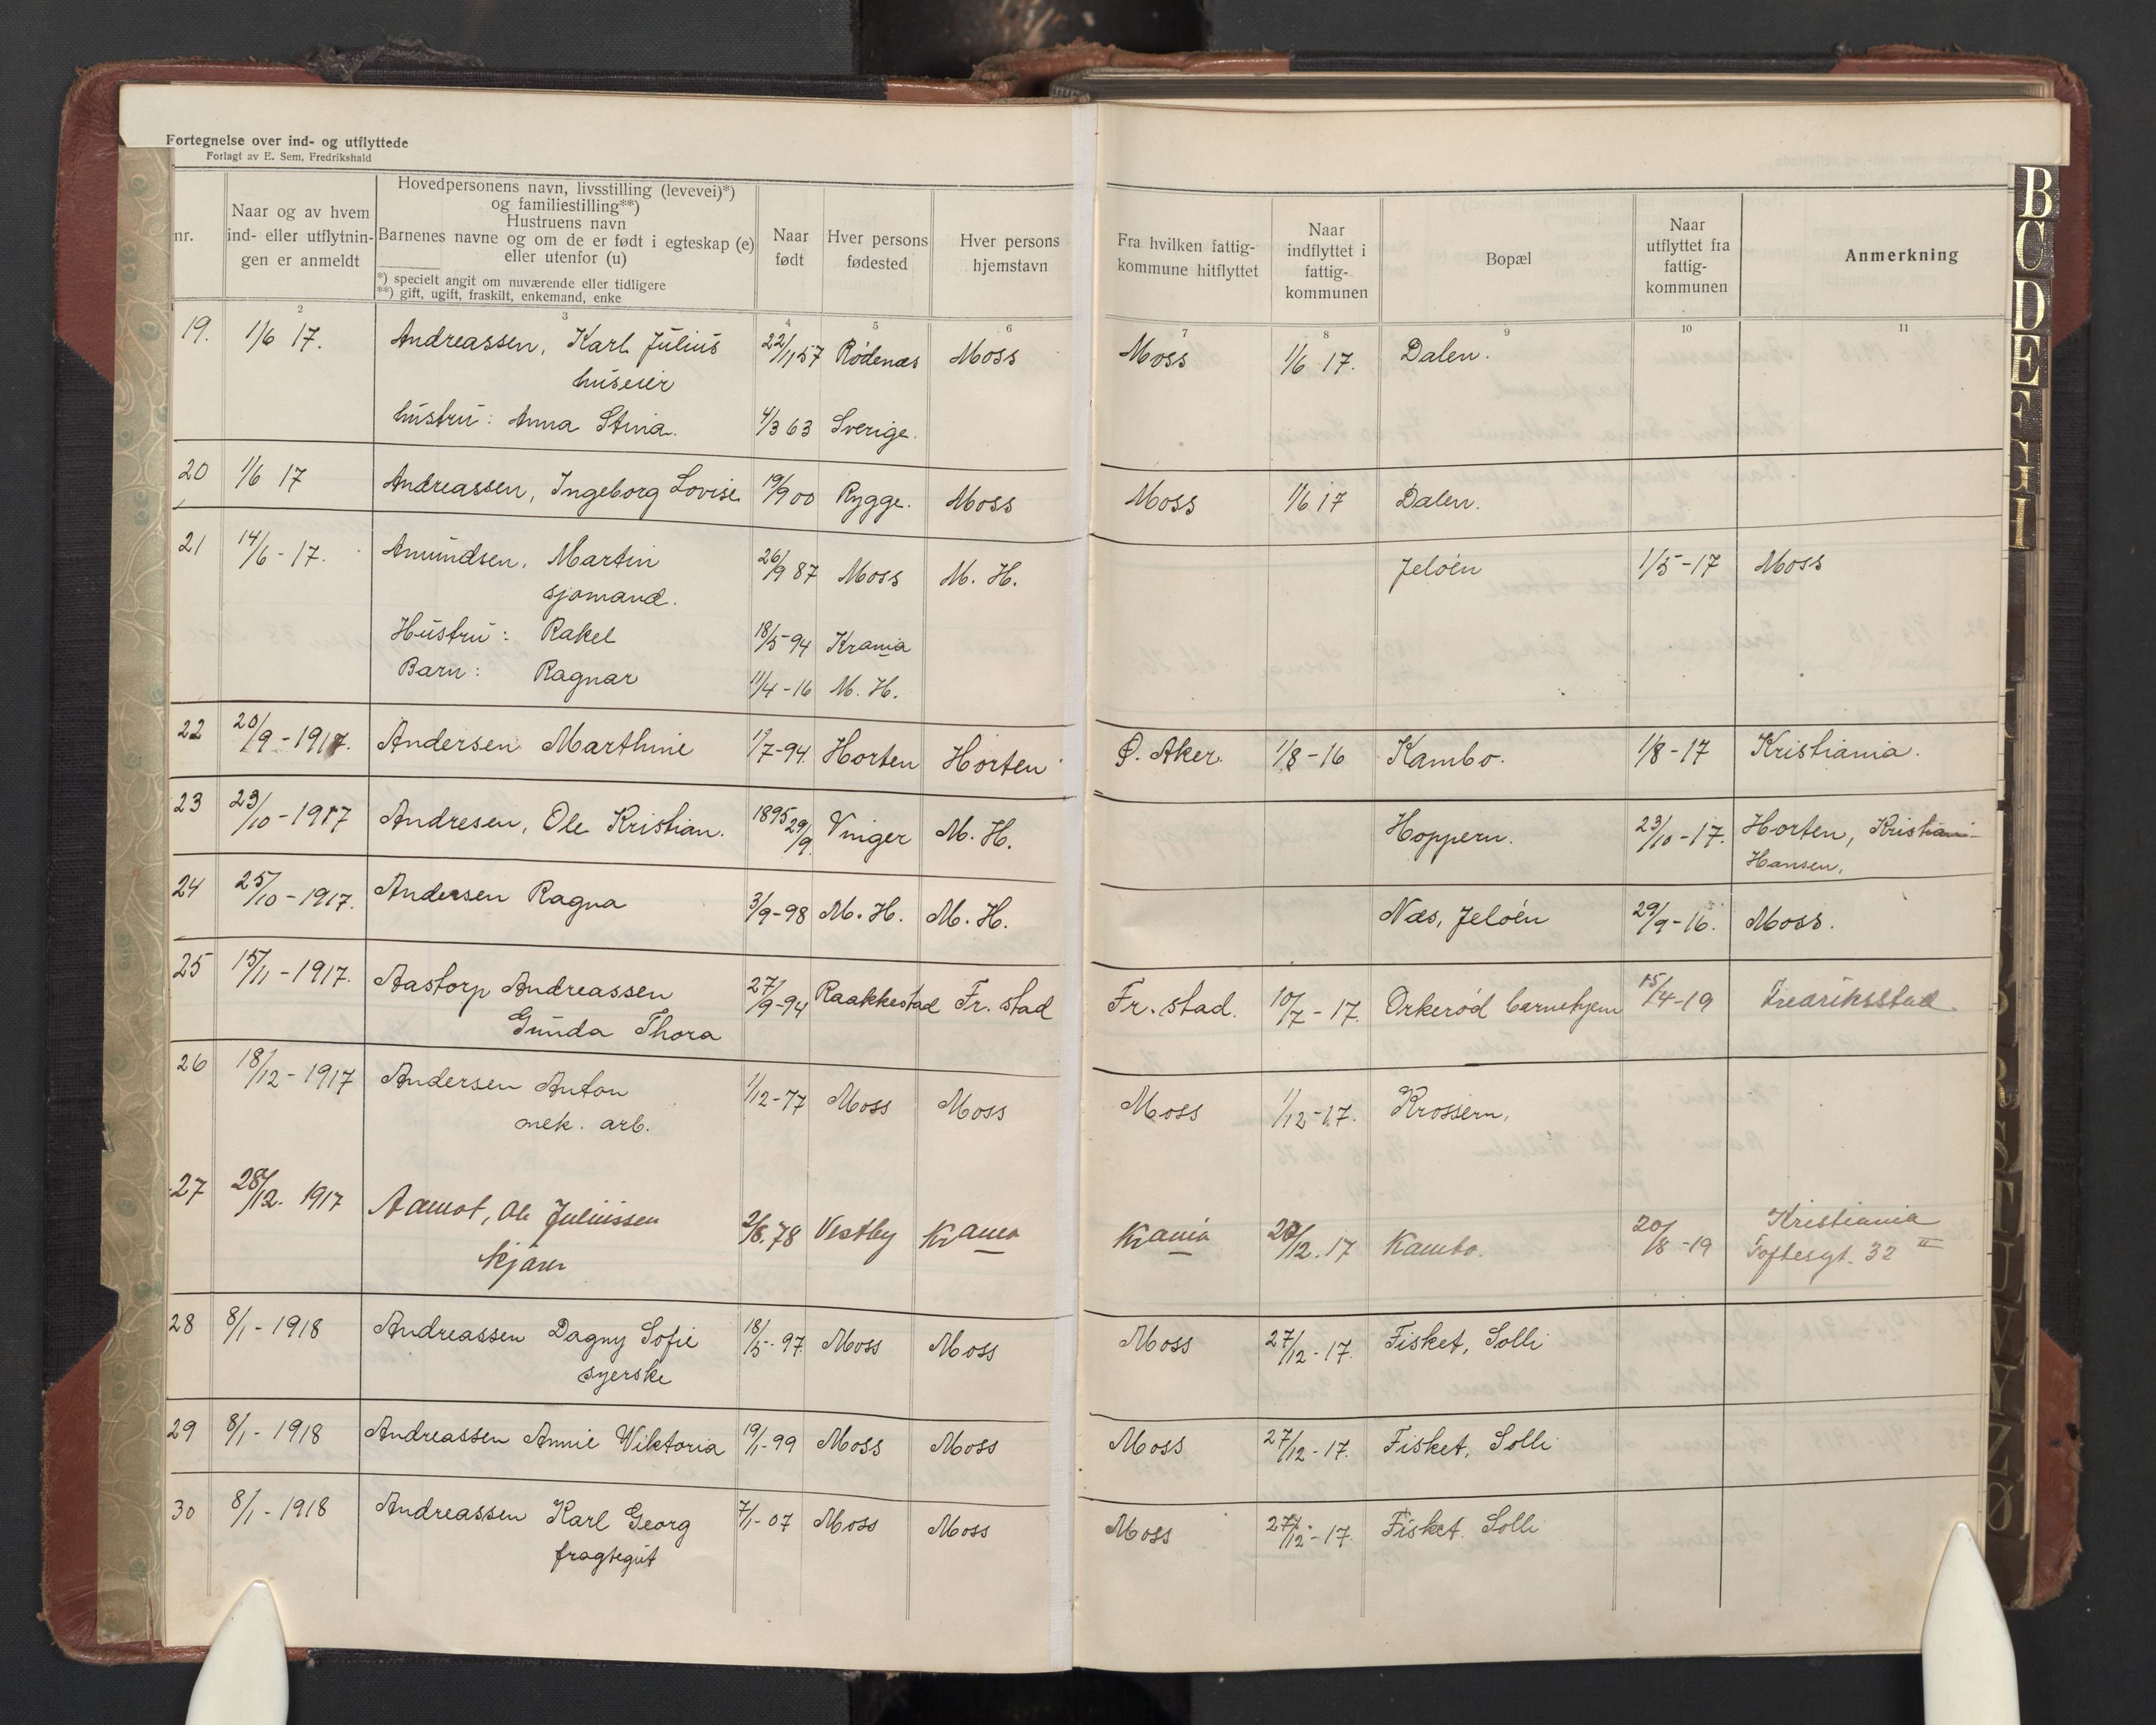 Fortegnelse over ind- og utflyttede
Forlagt av E. Sem, Fredrikshald
nr.
Naar og av hvem
ind- eller utflytnin-
gen er anmeldt
Hovedpersonens navn, livsstilling (levevei)*)
og familiestilling**)
Hustruens navn
Barnenes navne og om de er født i egteskap (e)
eller utenfor (u)
*) specielt angit om nuværende eller tidligere
**) gift, ugift, fraskilt, enkemand, enke
Naar
født
Hver persons
fødested
Hver persons
hjemstavn
Fra hvilken fattig-
kommune hitflyttet
Naar
indflyttet i
fattig-
kommunen
Bopæl
Naar
utflyttet fra
fattig-
kommunen
Anmerkning
2 3 4 5 6 7 8 9 10 11
19. 1/6 17. Andreassen, Karl Julius 22/11 57 Rødenæs Moss Moss 1/6 17. Dalen.
huseier
hustru: Anna Stina. 4/3 63 Sverige.
20 1/6 17 Andreassen, Ingeborg Lovise 19/9 00 Rygge. Moss Moss 1/6 17 Dalen.
21 14/6 - 17. Amundsen, Martin 26/9 87 Moss M. H. Jeløen 1/5 - 17 Moss
sjømand.
Hustru: Rakel 18/5 - 94 Krania
Barn: Ragnar 11/4 - 16 M. H.
22 20/9 - 1917. Andersen Marthine 17/7 - 94. Horten Horten Ø. Aker. 1/8 - 16 Kambo. 1/8 - 17 Kristiania.
23 23/10 - 1917 Andresen, Ole Kristian. 1895 29/9. Vinger M. H. Hoppern. 23/10 - 17. Horten, Kristiani-
Hansen.
24 25/10 - 1917. Andersen Ragna 3/9 - 98 M. H. M. H. Næs, Jeløen 29/9 - 16. Moss.
25 15/11 - 1917. Aastorp Andreassen 27/9 - 94 Raakkestad Fr. stad Fr. stad. 10/7 - 17. Orkerød barnehjem 15/4 - 19 Fredriksstad
Gunda Thora
26 18/12 - 1917 Andersen Anton 1/12 - 77 Moss Moss Moss 1/12 - 17. Krossern.
mek. arb.
27 28/12. 1917 Aamot, Ole Juliussen 2/8. 78 Vestby Krania Krania 28/12. 17 Kambo. 20/8 - 19 Kristiania
kjører Toftesgt. 32 II
28 8/1 - 1918 Andreassen Dagny Sofie 18/5 - 97 Moss Moss Moss 27/12 - 17. Fisket, Solli
syerske
29 8/1 - 1918 Andreassen Annie Viktoria 19/1 - 99 Moss Moss Moss 27/12 - 17. Fisket, Solli
30 8/1 - 1918 Andreassen Karl Georg 7/1 - 07 Moss Moss Moss 27/12 - 17. Fisket. Solli
fragtegut
B
C
D
E
F
G
H